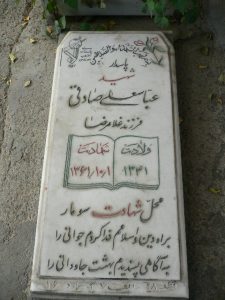 پاسدار
شهید
عباسعلی صادقی
فرزند غلامرضا
ولادت شهادت
۱۳۴۱ ۱۳۶۱/۱۰/۱
محل شهادت سومار
براه دین و اسلامم فدا کردم جوانی را
به آگاهی پسندیدم بهشت جاودانی را